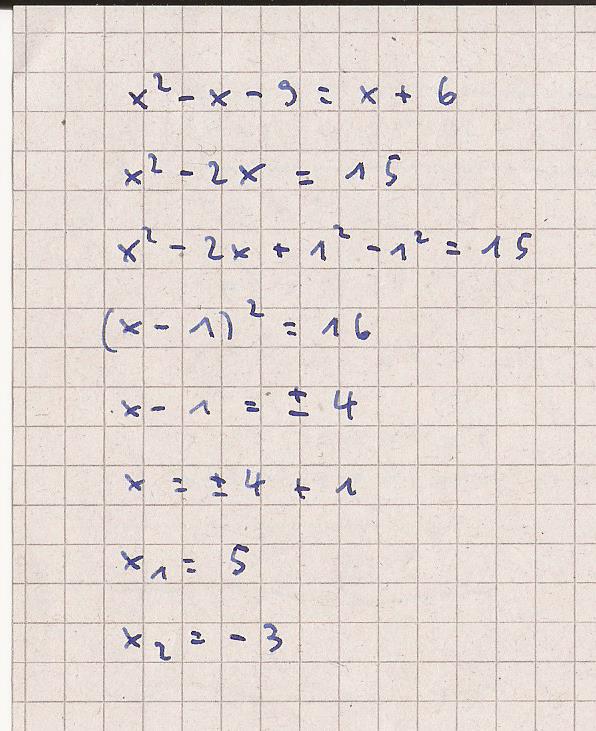 x² - x - 9 = x + 6
x² - 2x = 15
x² - 2x + 1² - 1² = 15
(x - 1)² = 16
x - 1 = ± 4
x = ± 4 + 1
x₁ = 5
x₂ = - 3